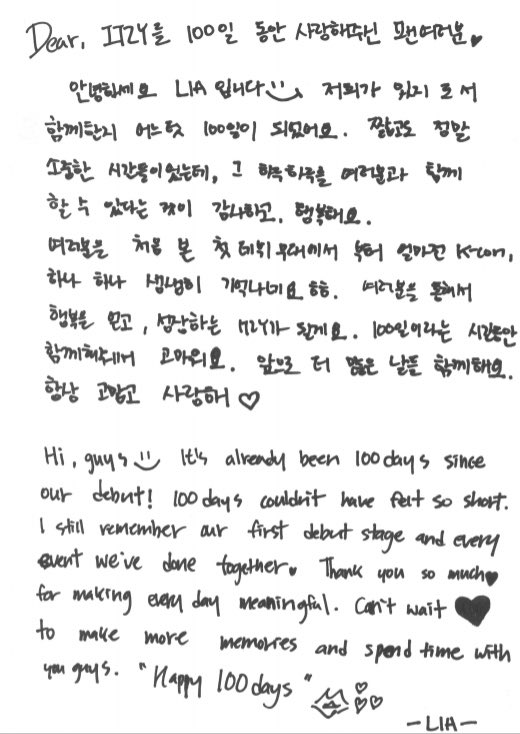 Dear, ITZY를 100일 동안 사랑해주신 팬여러분♥
안녕하세요 LIA 입니다 저희가 있지 로서
함께한지 어느덧 100일이 되었어요. 짧고도 정말
소중한 시간들이었는데, 그 하루하루를 여러분과 함께
할 수 있다는 것이 감사하고, 행복해요.
여러분을 처음 본 첫 데뷔 무대에서 부터 얼마전 K-con,
하나 하나 생생히 기억나네요 ㅎㅎ. 여러분을 통해서
행복을 얻고, 성장하는 ITZY가 될게요. 100일이라는 시간동안
함께해줘서 고마워요. 앞으로 더 많은 날들 함께해요.
항상 고맙고 사랑해 ♡
Hi, guys It's already been 100 days since
our debut! 100 days couldn't have felt so short.
I still remember our first debut stage and every
event we've done together♥ Thank you so much♥
for making every day meaningful. Can't wait ♥
to make more memories and spend time with
you guys. "Happy 100 days" ♡♡♡
-LIA-